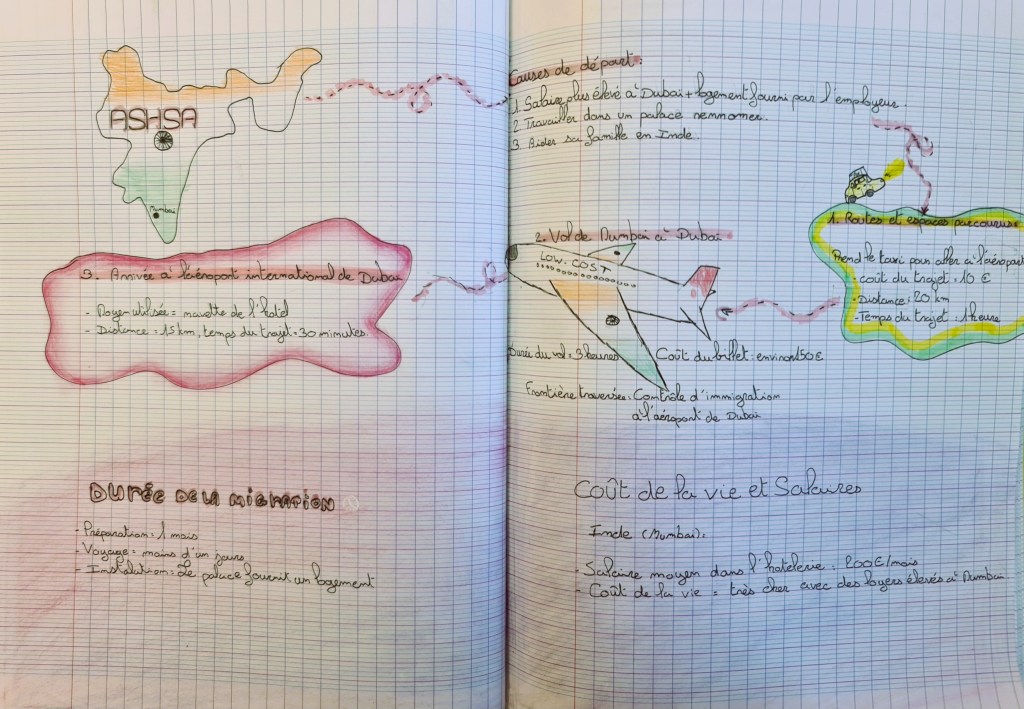 ASHSA
Mumbai
Causes de départ:
1. Salaire plus élevé à Dubaï + logement fourni par l'employeur.
2. Travailler dans un palace renommer.
3. Aider sa famille en Inde.
1. Routes et espaces parcourus:
Prend le taxi pour aller à l'aéroport
- coût du trajet = 10 €
- Distance = 20 km
- Temps du trajet = 1 heure
2. Vol de Mumbai à Dubaï
LOW. COST
Durée du vol = 3 heures
Coût du billet: environ 150 €
Frontière traversée: Contrôle d'immigration
à l'aéroport de Dubaï
3. Arrivée à l'aéroport international de Dubaï
- Moyen utilisée = navette de l'hotel
- Distance = 15 km, temps du trajet = 30 minutes.
DURée De LA MIGRATION
- Préparation: 1 mois
- Voyage = moins d'un jours
- Instalation: Le palace fournit un logement
Coût de la vie et Salaires
Inde (Mumbai):
- Salaire moyen dans l'hotelerie : 200€/mois
- Coût de la vie = très cher avec des loyers élevés à Mumbai